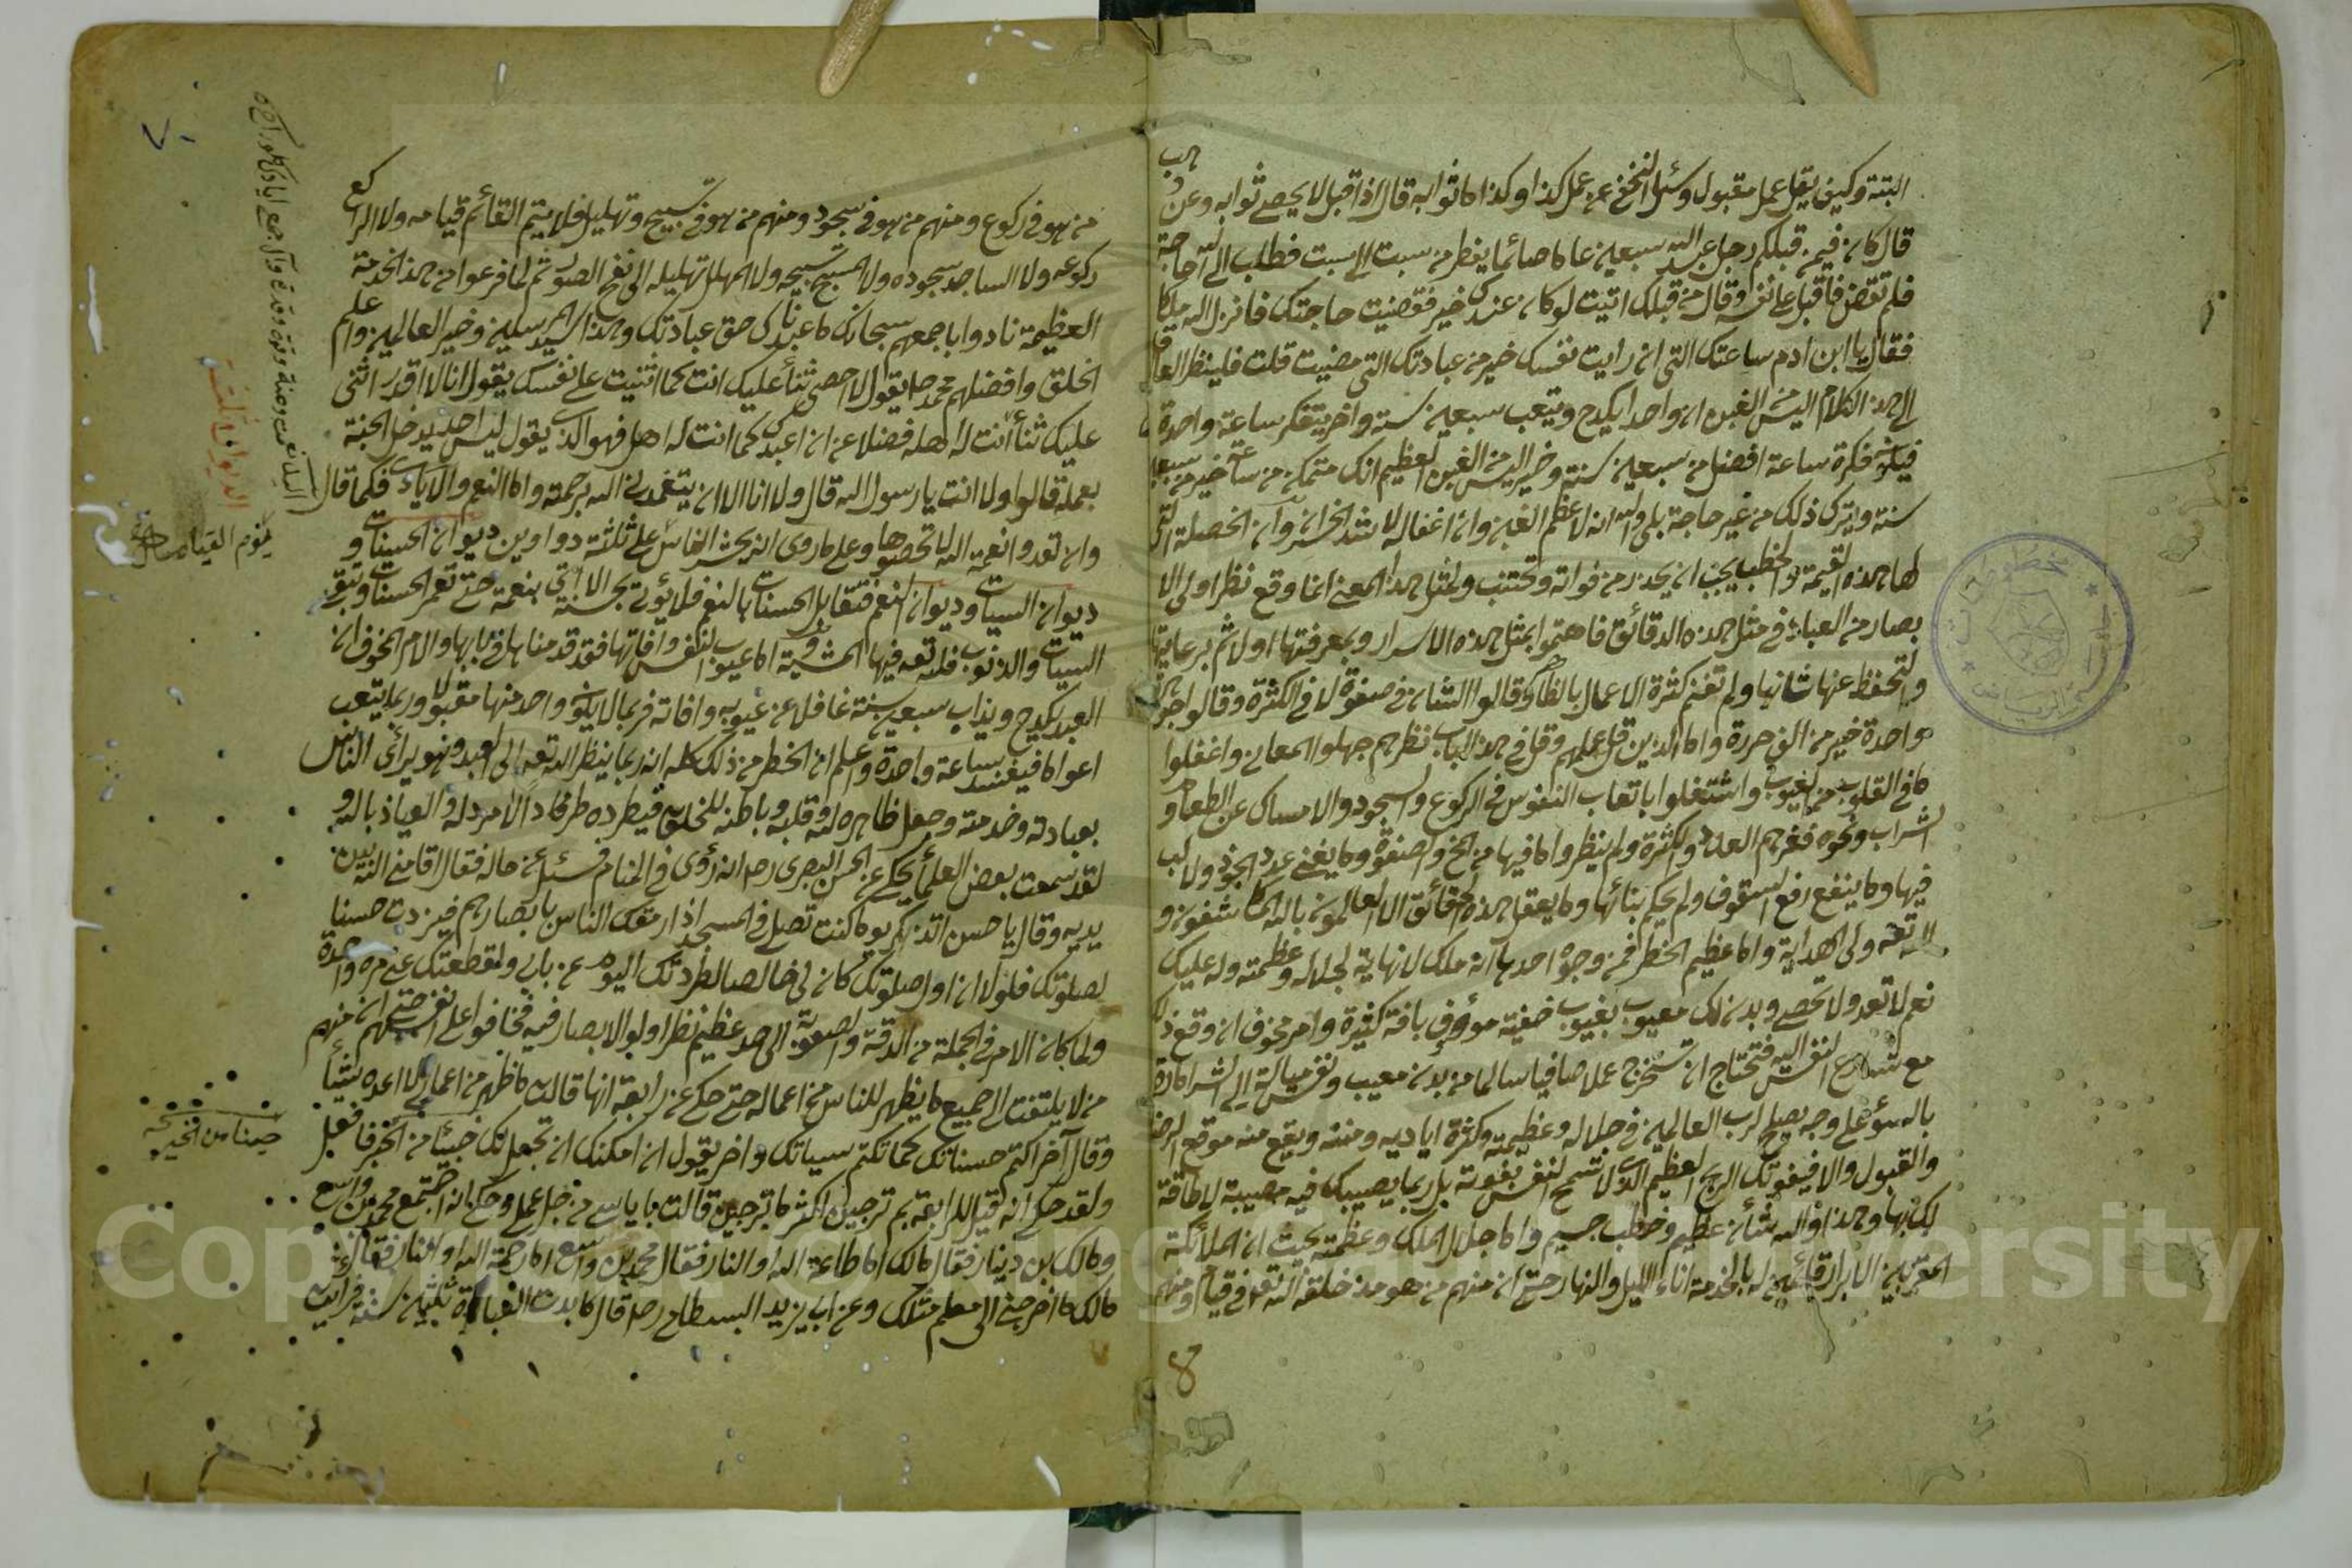 البتة وكيف يقل عمل مقبول وسئل النخعي عن عمل كذا وكذا ما ثوابه قال اذا قبل لا يحصى ثوابه وعن وهب
قال كان فيمن قبلكم رجل عبد الله سبعين عاما صائما يفطر من سبت الى سبت فطلب الى الله حاجة
فلم تقض فاقبل على نفسه وقال من قبلك اتيت لو كان عندك خير فقضيت حاجتك فانزل الله ملكا
فقال يا ابن ادم ساعتك التي ازرايت نفسك خير من عبادتك التي مضيت قلت فلينظر العاقل
الى هذا الكلام اليس من الغبن ان واحدا يكدح ويتعب سبعين سنة واخر يتفكر ساعة واحدة
فيكون فكرة ساعة افضل من سبعين سنة اليس من الغبن العظيم انك متمكن من ساعة خير من سبعين
سنة وتترك ذلك من غير حاجة بلى والله انه لاعظم الغبن وان اغفاله لاشد الخسران وان الخصلة التي
لها هذه القيمة والخطر يجب ان يحذر من فواته وتجتنب ولمثل هذا المعنى انما وقع نظر اولى الا
بصار من العباد في مثل هذه الدقائق فاهتموا بمثل هذه الاسرار وبمعرفتها اولا ثم برعايتها
والتحفظ عنها ثانيا ولم تغنهم كثرة الاعمال بالظاهر وقالوا الشان في صفوة لا في الكثرة وقالوا جوهرة
واحدة خير من الف خرزة واما الذين قل علمهم وقل في هذا الباب نظرهم جهلوا المعاني واغفلوا
ما في القلوب من العيوب واشتغلوا باتعاب النفوس في الركوع والسجود والامساك عن الطعام و
الشراب ونحوه فغرهم العدد والكثرة ولم ينظروا ما فيها من المخ والصفوة وما يغني عدد الجوز ولا لب
فيها وما ينفع رفع السقوف ولم يحكم بنائها وما يعقل هذه الحقائق الا العالمون بالله المكاشفون و
الله تعالى ولى الهداية واما عظيم الخطر فمن وجوه احدها انه ملك لا نهاية لجلاله وعظمته وله عليك
نعم لا تعد ولا تحصى وبدنك معيوب بعيوب خفية مؤوف بافة كثيرة وامر مخوف ان وقع زلل
مع تسارع النفس اليه فتحتاج ان تستخرج عملا صافيا سالما من بدن معيب ونفس ميالة الى الشر امارة
بالسوء على وجه يصلح لرب العالمين في جلاله وعظمته وكثرة اياديه ومننه ويقع منه موقع الرضا
والقبول والا فيفوتك الربح العظيم الذي لا تسمح النفس بفوته بل ربما يصيبك فيه مصيبة لا طاقة
لك بها وهذا والله شان عظيم وخطب جسيم واما جلال الملك وعظمته بحيث ان الملائكة
المقربين الابرار قائمين له بالخدمة اناء الليل والنهار حتى ان منهم من هو مذ خلقه الله تعالى في قيام ومنهم
8
٧٠
من هو في ركوع ومنهم من هو في سجود ومنهم من هو في تسبيح وتهليل فلا يتم القائم قيامه ولا الراكع
ركوعه ولا الساجد سجوده ولا المسبح تسبيحه ولا المهلل تهليله الى نفخ الصور ثم لما فرغوا من هذه الخدمة
العظيمة نادوا باجمعهم سبحانك ما عبدناك حق عبادتك وهذا سيد المرسلين وخير العالمين واعلم
الخلق وافضلهم محمد صلعم يقول لا احصى ثناء عليك انت كما اثنيت على نفسك يقول انا لا اقدر اثنى
عليك ثناء انت له اهله فضلا عن ان اعبدك كما انت له اهل فهو الذي يقول ليس احد يدخل الجنة
بعمله قالوا ولا انت يا رسول الله قال ولا انا الا ان يتغمدني الله برحمته واما النعم والايادي فكما قال
وان تعدوا نعمة الله لا تحصوها وعلى ما روى انه يحشر الناس على ثلثة دواوين ديوان الحسنات و
ديوان السيات وديوان النعم فتقابل الحسنات بالنعم فلا يؤتى بحسنة الا اتى بنعمة حتى تغمر الحسنات وتبقى
السيات والذنوب فلله تعالى فيها المشية واما عيوب النفس وافاتها فقد قدمناها في بابها والامر المخوف ان
العبد يكدح ويذاب سبعين سنة غافلا عن عيوبه وافاته فربما لا يكون واحد منها مقبولا وربما يتعب
اعواما فيفسد ساعة واحدة واعلم ان الخطر من ذلك كله انه ربما ينظر الله تعالى الى العبد وهو يرائى الناس
بعبادته وخدمته وجعل ظاهره لله وقلبه وباطنه للخلق فيطرده طردا لا مرد له والعياذ بالله و
لقد سمعت بعض العلماء يحكى عن الحسن البصرى رحمه انه رؤى في المنام فسئل عن حاله فقال اقامني الله بين
يديه وقال يا حسن اتذكر يوما كنت تصلى في المسجد اذ رمقك الناس بابصارهم فزدت حسنا
لصلوتك فلولا ان اول صلوتك كان لى خالصا لطردتك اليوم عن بابى ولقطعتك عنى مرة واحدة
ولما كان الامر في الجملة من الدقة والصعوبة الى حد عظيم نظر اولو الابصار فيه فخافوا على انفسهم حتى ان منهم
من لا يلتفت الى جميع ما يظهر للناس من اعماله حتى حكى عن رابعة انها قالت ما ظهر من اعمالى لا اعده شيئا
وقال آخر اكتم حسناتك كما تكتم سياتك واخر يقول ان امكنك ان تجعل لك خبيئا من الخير فافعل
ولقد حكى انه قيل لرابعة بم ترجين اكثر ما ترجين قالت باياسى من جل عملى وحكى انه اجتمع محمد بن واسع
ومالك بن دينار فقال مالك اما طاعة الله او النار فقال محمد بن واسع اما رحمة الله او النار فقال
مالك ما احوجنى الى معلم مثلك وعن ابى يزيد البسطامى رحمه قال كابدت العبادة ثلثين سنة فرايت
Copyright © King Saud University